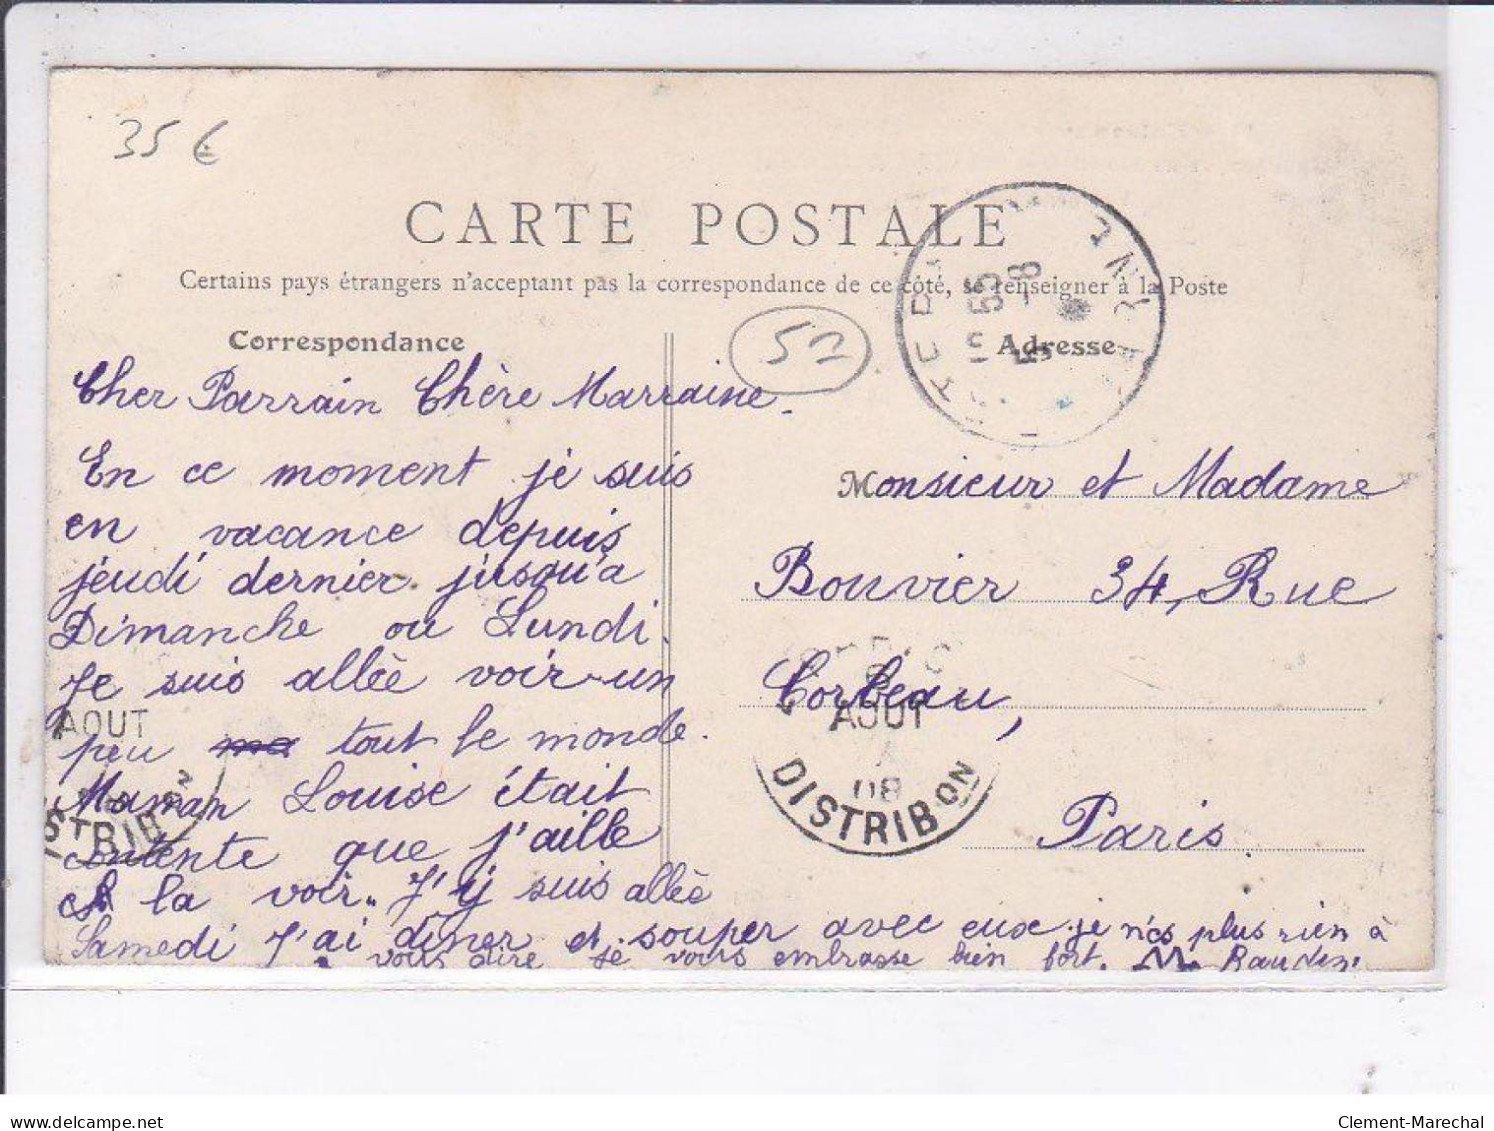 35 €
CARTE POSTALE
Certains pays étrangers n'acceptant pas la correspondance de ce côté, se renseigner à la Poste
52
Correspondance
Adresse
Cher Parrain Chère Marraine.
En ce moment je suis
en vacance depuis
jeudi dernier jusqu'a
Dimanche ou Lundi.
Je suis allée voir un
peu tout le monde.
Maman Louise était
contente que j'aille
la voir. J'y suis allée
Samedi J'ai diner et souper avec eux je n'es plus rien à
vous dire je vous embrasse bien fort. M. Raudin
Monsieur et Madame
Bouvier 34, Rue
Corbeau,
Paris.
15 55
5 -8
AOUT
STRIBon
8
AOUT
08
DISTRIBON
delcampe.net
Clement-Marechal